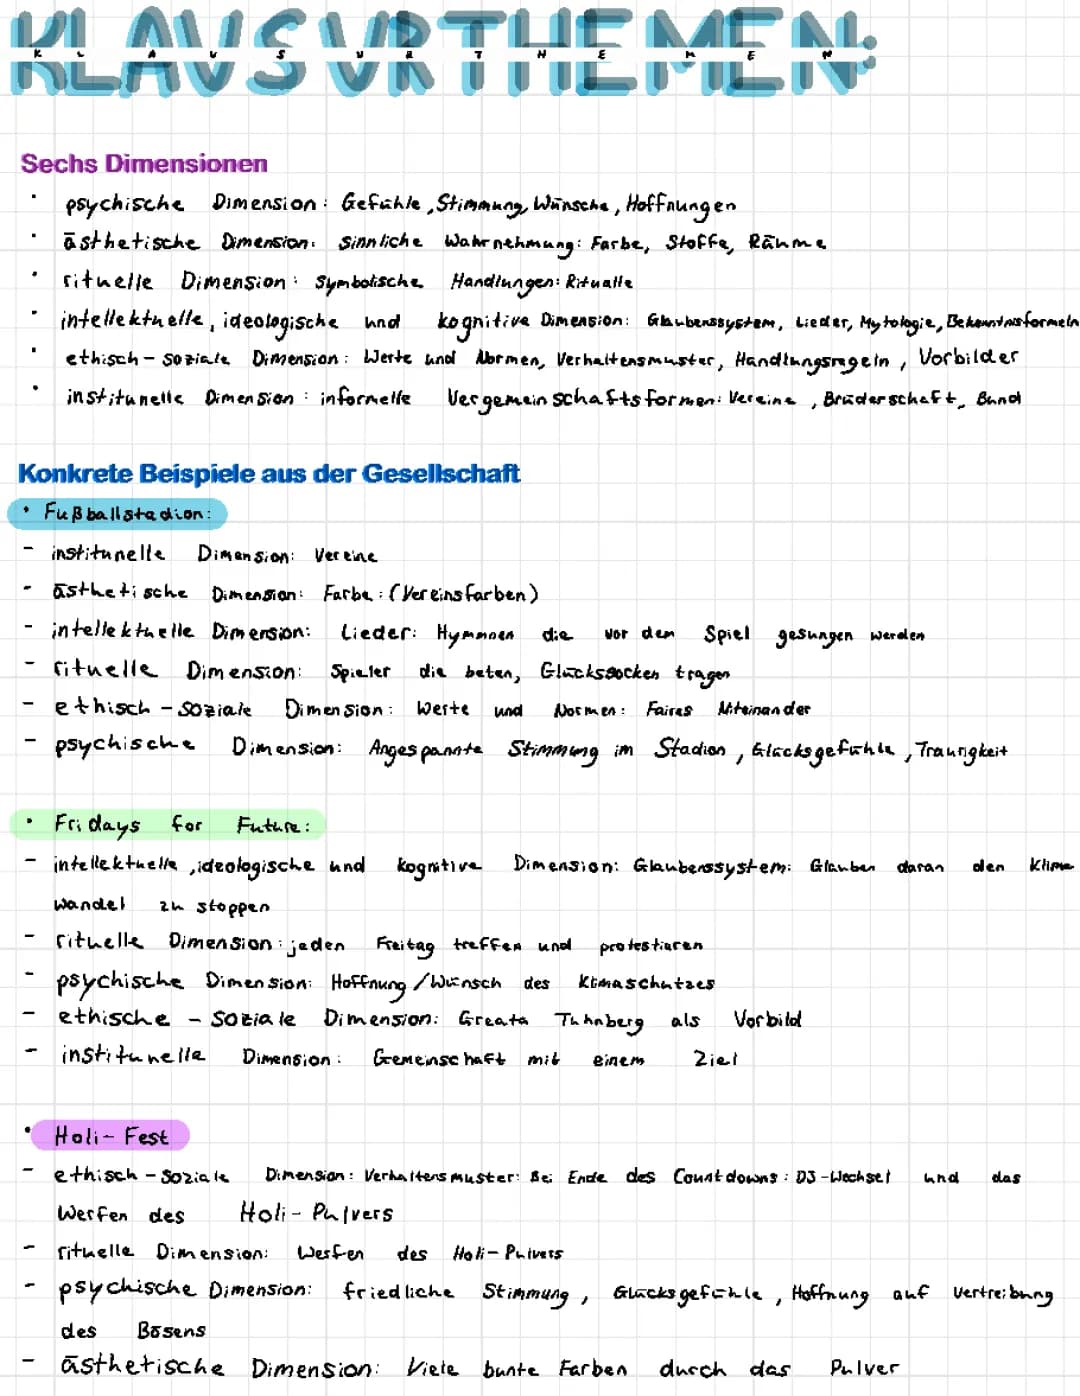 KLAUSURTHEMEN:
K L A U S U R T H E M E N
Sechs Dimensionen
• psychische Dimension: Gefühle, Stimmung, Wünsche, Hoffnungen
• ästhetische Dimension: Sinnliche Wahrnehmung: Farbe, Stoffe, Räume
• rituelle Dimension: Symbolische Handlungen: Ritualle
• intellektuelle, ideologische und kognitive Dimension: Glaubenssystem, Lieder, Mytologie, Bekenntnisformeln
• ethisch-soziale Dimension: Werte und Normen, Verhaltensmuster, Handlungsregeln, Vorbilder
• institunelle Dimension: informelle Vergemeinschaftsformen: Vereine, Bruderschaft, Bund
Konkrete Beispiele aus der Gesellschaft
• Fußballstadion:
- institunelle Dimension: Vereine
- ästhetische Dimension: Farbe: (Vereinsfarben)
- intellektuelle Dimension: Lieder: Hymnnen die vor dem Spiel gesungen werden
- rituelle Dimension: Spieler die beten, Glückssocken tragen
- ethisch-soziale Dimension: Werte und Normen: Faires Miteinander
- psychische Dimension: Angespannte Stimmung im Stadion, Glücksgefühle, Traurigkeit
• Fridays for Future:
- intellektuelle, ideologische und kognitive Dimension: Glaubenssystem: Glauben daran den Klima
wandel zu stoppen
- rituelle Dimension: jeden Freitag treffen und protestieren
- psychische Dimension: Hoffnung/Wünsch des Klimaschutzes
- ethische - soziale Dimension: Greata Tuhnberg als Vorbild
- institunella Dimension: Gemeinschaft mit einem Ziel
• Holi-Fest
- ethisch-soziale Dimension: Verhaltensmuster: Bei Ende des Countdowns: DJ-Wechsel und das
Werfen des Holi-Pulvers
- rituelle Dimension: Werfen des Holi-Pulvers
- psychische Dimension: friedliche Stimmung, Glücksgefühle, Hoffnung auf Vertreibung
des Bösens
- ästhetische Dimension: Viele bunte Farben durch das Pulver